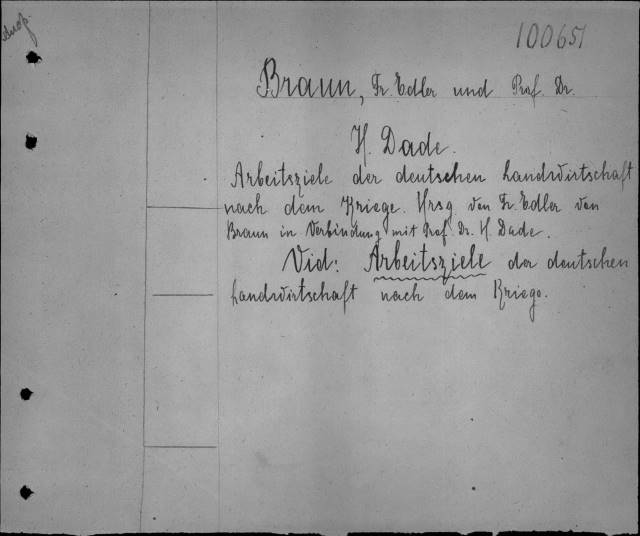 100651
Braun, Fr. Edler und Prof. Dr.
H. Dade.
Arbeitsziele der deutschen Landwirtschaft
nach dem Kriege. Hrsg. von Fr. Edler von
Braun in Verbindung mit Prof. Dr. H. Dade.
Vid: Arbeitsziele der deutschen
Landwirtschaft nach dem Kriege.